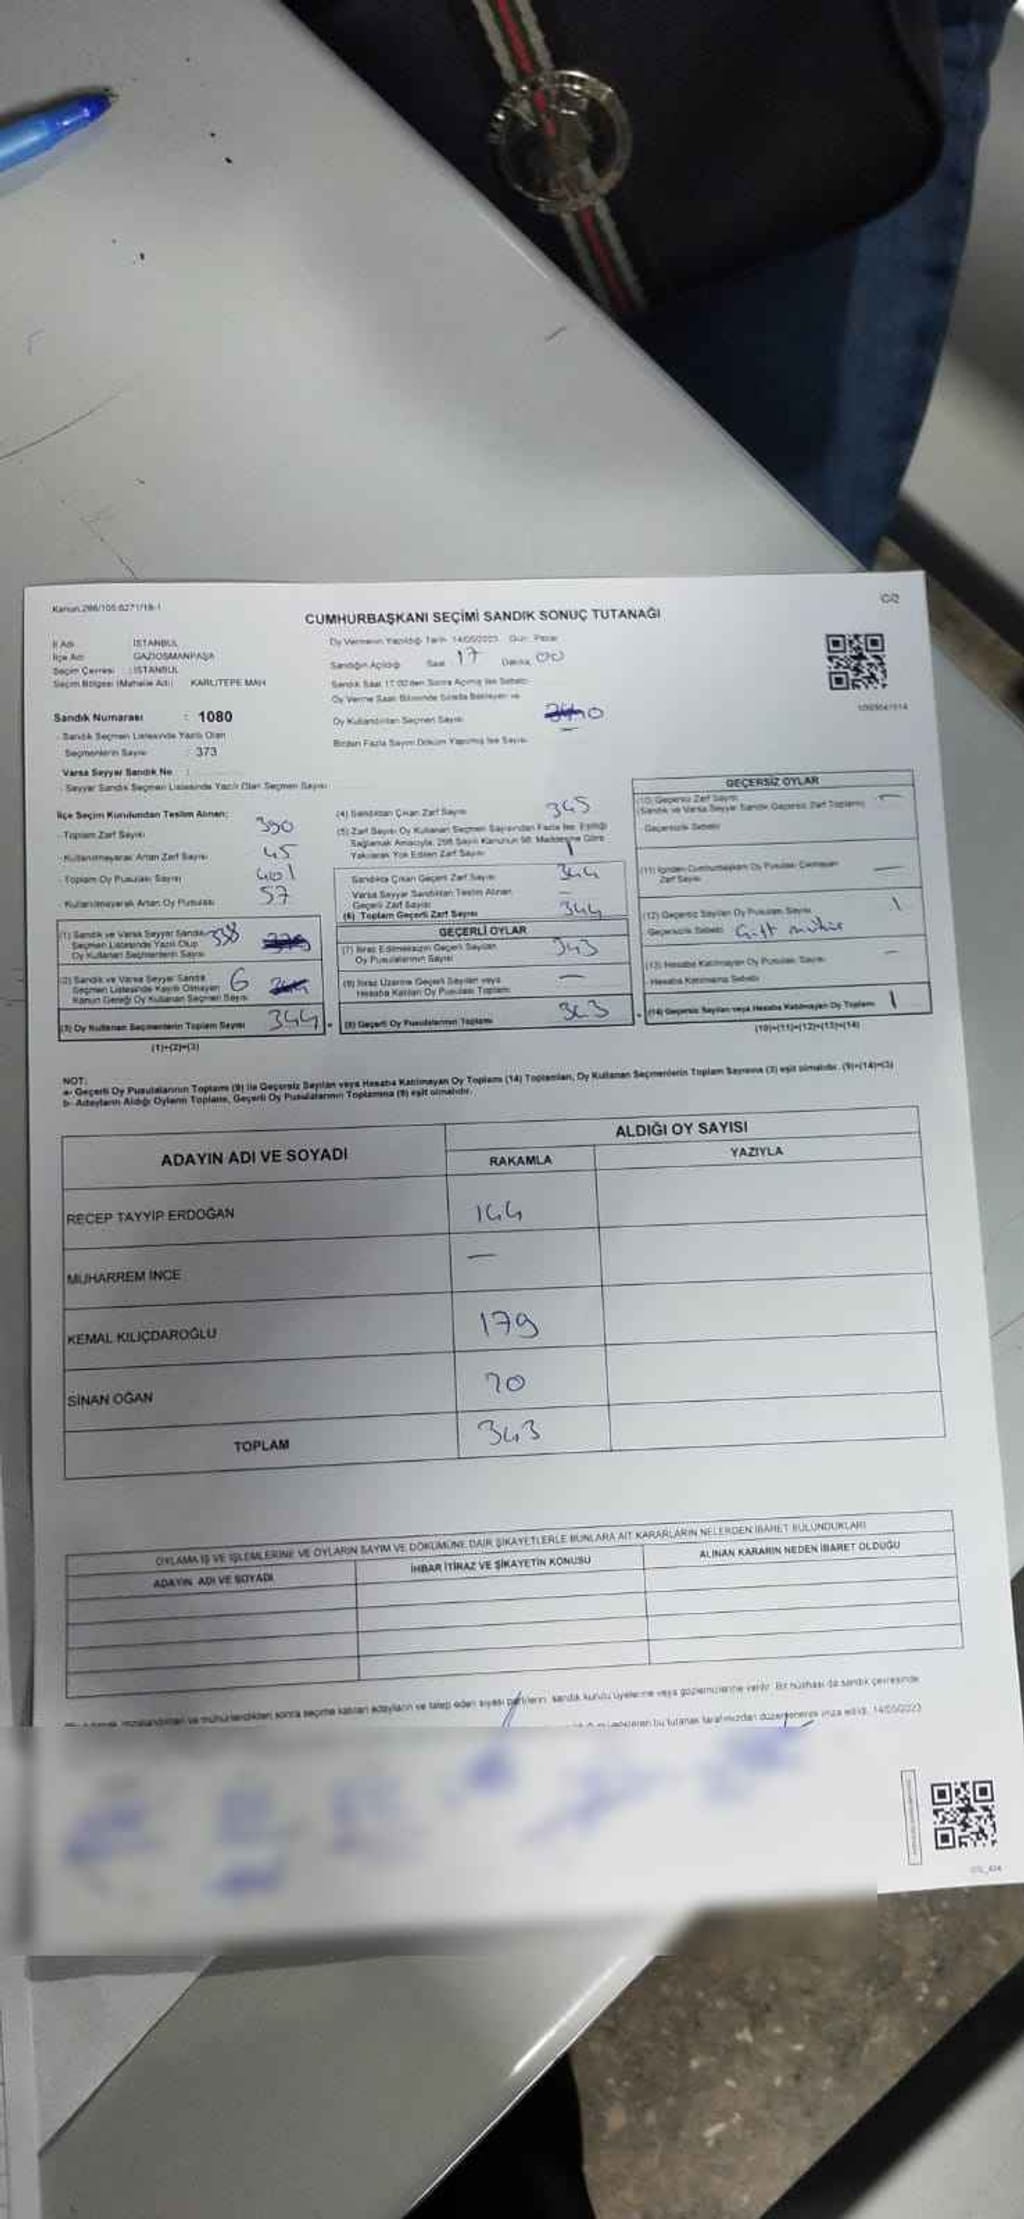 Kanun.298/105.6271/18-1
C/2
CUMHURBAŞKANI SEÇİMİ SANDIK SONUÇ TUTANAĞI
İl Adı : İSTANBUL
İlçe Adı : GAZİOSMANPAŞA
Seçim Çevresi : İSTANBUL
Seçim Bölgesi (Mahalle Adı) : KARLITEPE MAH
Oy Vermenin Yapıldığı Tarih: 14/05/2023 Gün: Pazar
Sandığın Açıldığı Saat 17 Dakika 00
Sandık Saat 17:00'den Sonra Açılmış İse Sebebi:
Oy Verme Saati Bitiminde Sırada Bekleyen ve
Oy Kullandırılan Seçmen Sayısı 0
Birden Fazla Sayım Döküm Yapılmış İse Sayısı
Sandık Numarası : 1080
- Sandık Seçmen Listesinde Yazılı Olan
Seçmenlerin Sayısı : 373
Varsa Seyyar Sandık No :
- Seyyar Sandık Seçmen Listesinde Yazılı Olan Seçmen Sayısı
İlçe Seçim Kurulundan Teslim Alınan;
- Toplam Zarf Sayısı 390
- Kullanılmayarak Artan Zarf Sayısı 45
- Toplam Oy Pusulası Sayısı 401
- Kullanılmayarak Artan Oy Pusulası 57
(1) Sandık ve Varsa Seyyar Sandık
Seçmen Listesinde Yazılı Olup
Oy Kullanan Seçmenlerin Sayısı 338
(2) Sandık ve Varsa Seyyar Sandık
Seçmen Listesinde Kayıtlı Olmayan
Kanun Gereği Oy Kullanan Seçmen Sayısı 6
(3) Oy Kullanan Seçmenlerin Toplam Sayısı 344
(1)+(2)=(3)
(4) Sandıktan Çıkan Zarf Sayısı 345
(5) Zarf Sayısı Oy Kullanan Seçmen Sayısından Fazla İse, Eşitliği
Sağlamak Amacıyla, 298 Sayılı Kanunun 98. Maddesine Göre
Yakılarak Yok Edilen Zarf Sayısı 1
Sandıkta Çıkan Geçerli Zarf Sayısı 344
Varsa Seyyar Sandıktan Teslim Alınan
Geçerli Zarf Sayısı —
(6) Toplam Geçerli Zarf Sayısı 344
GEÇERLİ OYLAR
(7) İtiraz Edilmeksizin Geçerli Sayılan
Oy Pusulalarının Sayısı 343
(8) İtiraz Üzerine Geçerli Sayılan veya
Hesaba Katılan Oy Pusulası Toplamı —
(9) Geçerli Oy Pusulalarının Toplamı 343
GEÇERSİZ OYLAR
(10) Geçersiz Zarf Sayısı
(Sandık ve Varsa Seyyar Sandık Geçersiz Zarf Toplamı) —
Geçersizlik Sebebi
(11) İçinden Cumhurbaşkanı Oy Pusulası Çıkmayan
Zarf Sayısı —
(12) Geçersiz Sayılan Oy Pusulası Sayısı 1
Geçersizlik Sebebi Çift mühür
(13) Hesaba Katılmayan Oy Pusulası Sayısı —
Hesaba Katılmama Sebebi
(14) Geçersiz Sayılan veya Hesaba Katılmayan Oy Toplamı 1
(10)+(11)+(12)+(13)=(14)
NOT:
a- Geçerli Oy Pusulalarının Toplamı (9) ile Geçersiz Sayılan veya Hesaba Katılmayan Oy Toplamı (14) Toplamları, Oy Kullanan Seçmenlerin Toplam Sayısına (3) eşit olmalıdır. (9)+(14)=(3)
b- Adayların Aldığı Oyların Toplamı, Geçerli Oy Pusulalarının Toplamına (9) eşit olmalıdır.
ADAYIN ADI VE SOYADI
ALDIĞI OY SAYISI
RAKAMLA YAZIYLA
RECEP TAYYİP ERDOĞAN 144
MUHARREM İNCE —
KEMAL KILIÇDAROĞLU 179
SİNAN OĞAN 20
TOPLAM 343
OYLAMA İŞ VE İŞLEMLERİNE VE OYLARIN SAYIM VE DÖKÜMÜNE DAİR ŞİKAYETLERLE BUNLARA AİT KARARLARIN NELERDEN İBARET BULUNDUKLARI
ADAYIN ADI VE SOYADI
İHBAR İTİRAZ VE ŞİKAYETİN KONUSU
ALINAN KARARIN NEDEN İBARET OLDUĞU
imzalandıktan ve mühürlendikten sonra seçime katılan adayların ve talep eden siyasi partilerin, sandık kurulu üyelerine veya gözlemcilerine verilir. Bir nüshası da sandık çevresinde
bu tutanak tarafımızdan düzenlenerek imza edildi. 14/05/2023